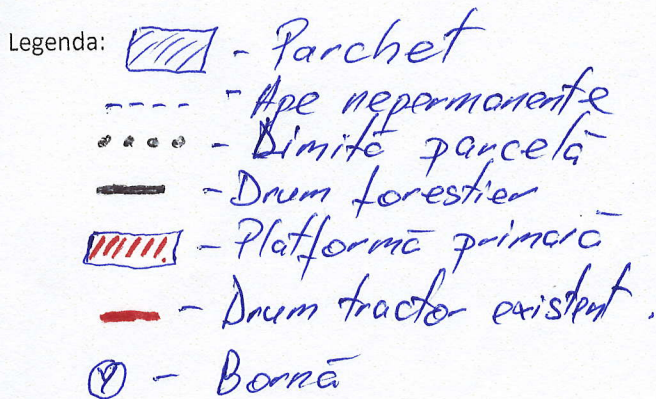 Legenda: - Parchet
- Ape nepermanente
- Limită parcelă
- Drum forestier
- Platformă primară
- Drum tractor existent.
- Bornă